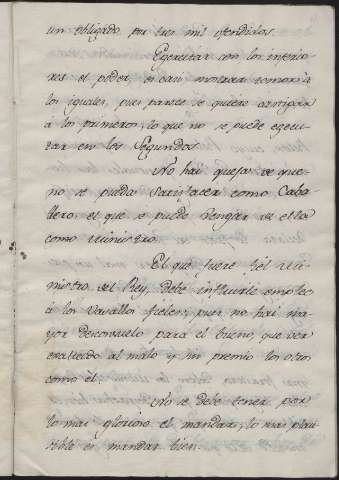 un obligado por tres mil ofendidos.
Egecutar con los inferio-
res el poder, es casi mostrar temor à
los iguales, pues parece se quiere castigar
à los primeros, lo que no se puede egecu-
tar en los Segundos.
No hai quejas de que
no se pueda Satisfacer como Caba-
llero, el que se puede Vengar de ella
como ministro.
El que fuere fiel mi-
nistro del Rey, debe influirle emplee
à los Vasallos fieles; pues no hai ma-
yor desconsuelo para el bueno, que ver
exaltado al malo y sin premio los otros
como èl.
No se debe tener por
lo mas glorioso el mandar; lo mas plau-
sible es mandar bien.